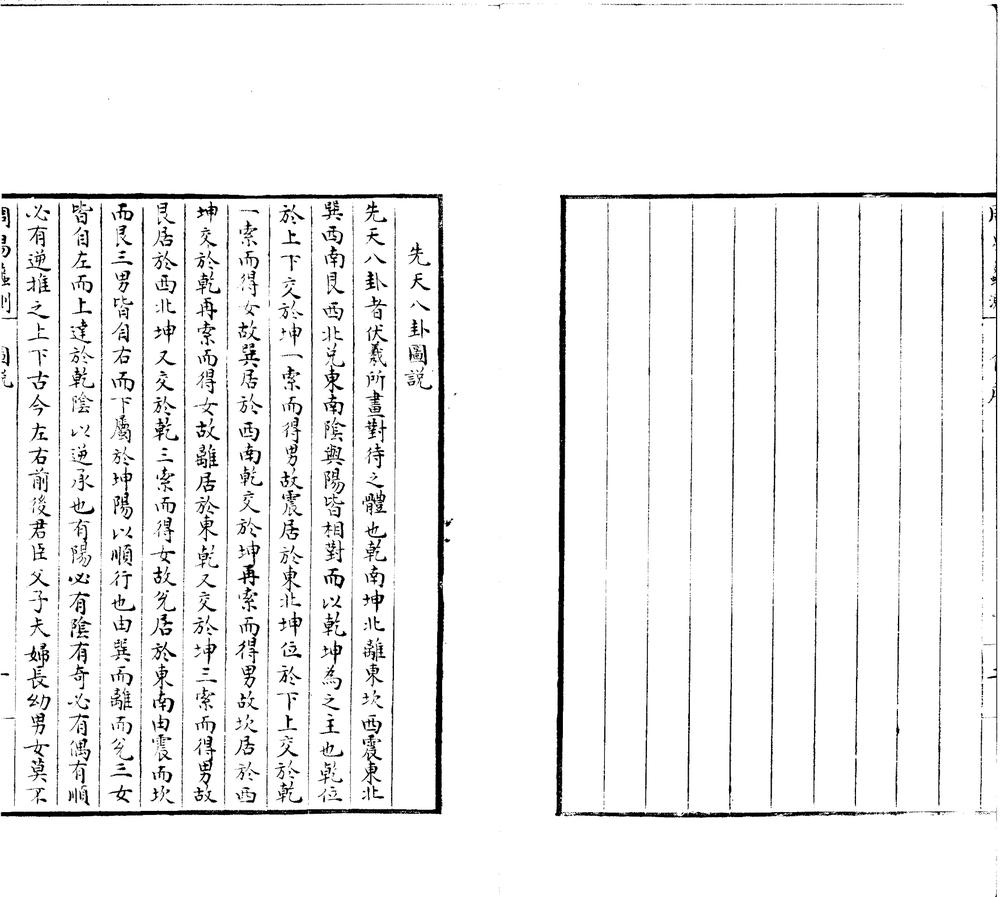 先天八卦圖説
先天八卦者伏羲所畫對待之體也乾南坤北離東坎西震東北
巽西南艮西北兑東南陰與陽皆相對而以乾坤為之主也乾位
於上下交於坤一索而得男故震居於東北坤位於下上交於乾
一索而得女故巽居於西南乾交於坤再索而得男故坎居於西
坤交於乾再索而得女故離居於東乾又交於坤三索而得男故
艮居於西北坤又交於乾三索而得女故兑居於東南由震而坎
而艮三男皆自右而下屬於坤陽以順行也由巽而離而兑三女
皆自左而上達於乾陰以逆承也有陽必有陰有奇必有偶有順
必有逆推之上下古今左右前後君臣父子夫婦長幼男女莫不
周易蠡測 圖説 一